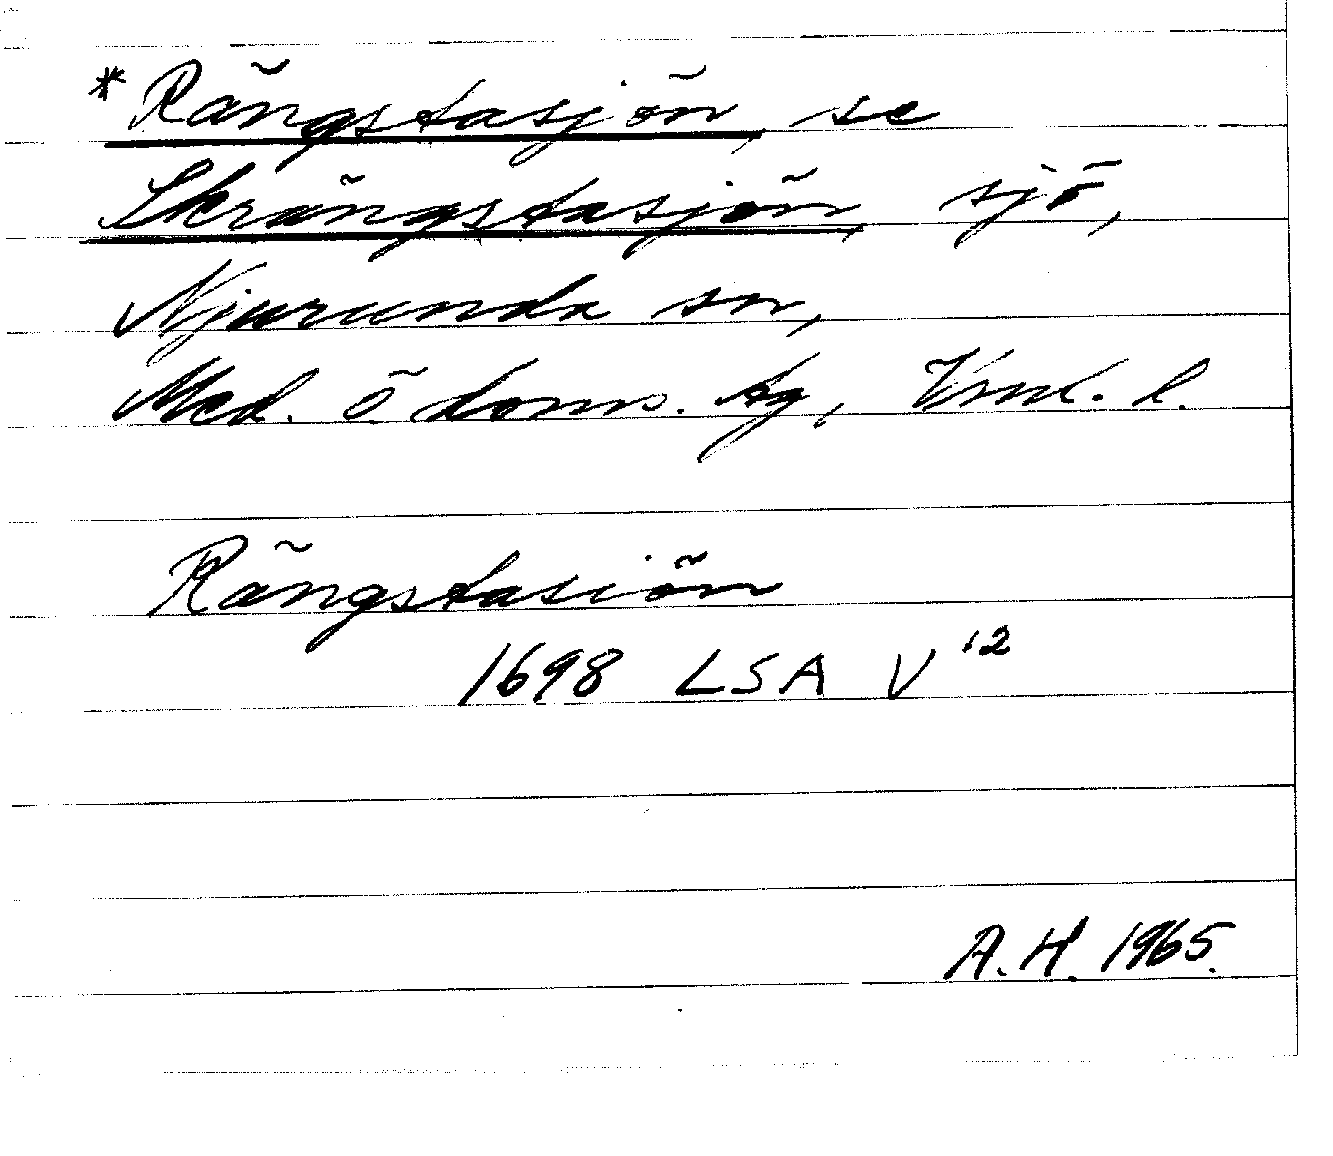 *Rängstasjön, se
Skrängstasjön, sjö,
Njurunda sn,
Med. ö doms. tg, Vrnl. l.
Rängstasiön
1698 LSA V 12
A.H. 1965.